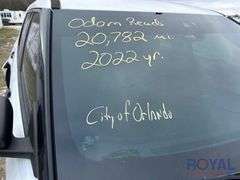 Odom Reads
20,782 mi.
2022 yr.
City of Orlando
ROYAL